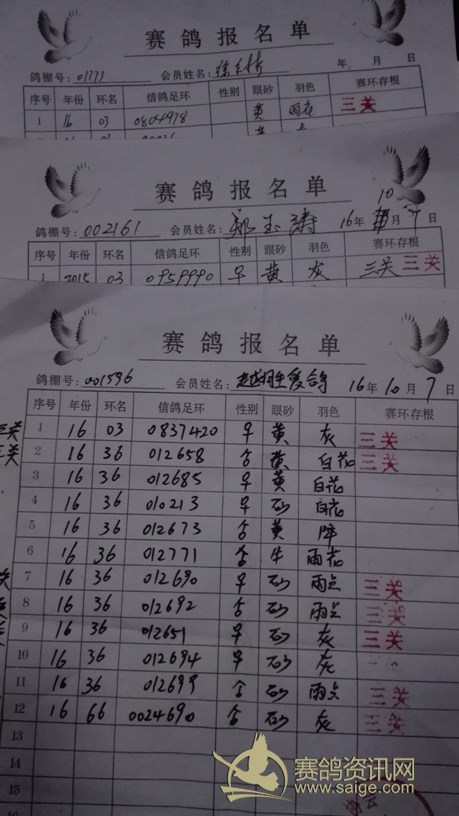 赛鸽报名单
鸽棚号:01777 会员姓名: 年 月 日
序号 年份 环名 信鸽足环 性别 眼砂 羽色 赛环存根
1 16 03 0804978 黄 雨花 三关
赛鸽报名单
鸽棚号:002161 会员姓名:郑玉涛 16年10月7日
序号 年份 环名 信鸽足环 性别 眼砂 羽色 赛环存根
1 2015 03 0959990 早 黄 灰 三关 三关
赛鸽报名单
鸽棚号:001596 会员姓名:赵翔宇爱鸽 16年10月7日
序号 年份 环名 信鸽足环 性别 眼砂 羽色 赛环存根
三关 1 16 03 0837420 早 黄 灰 三关
三关 2 16 36 012658 合 黄 白花 三关
3 16 36 012685 早 黄 白花
4 16 36 010213 早 砂 白花
5 16 36 012673 合 黄
6 16 36 012771 合 牛 雨花
7 16 36 012690 早 砂 雨点 三关
8 16 36 012692 合 砂 雨点 三关
9 16 36 012651 早 砂 灰 三关
10 16 36 012694 早 砂 灰
11 16 36 012699 合 砂 雨点 三关
12 16 66 0024690 合 砂 灰 三关
13
14
15
赛鸽资讯网
www.saige.com